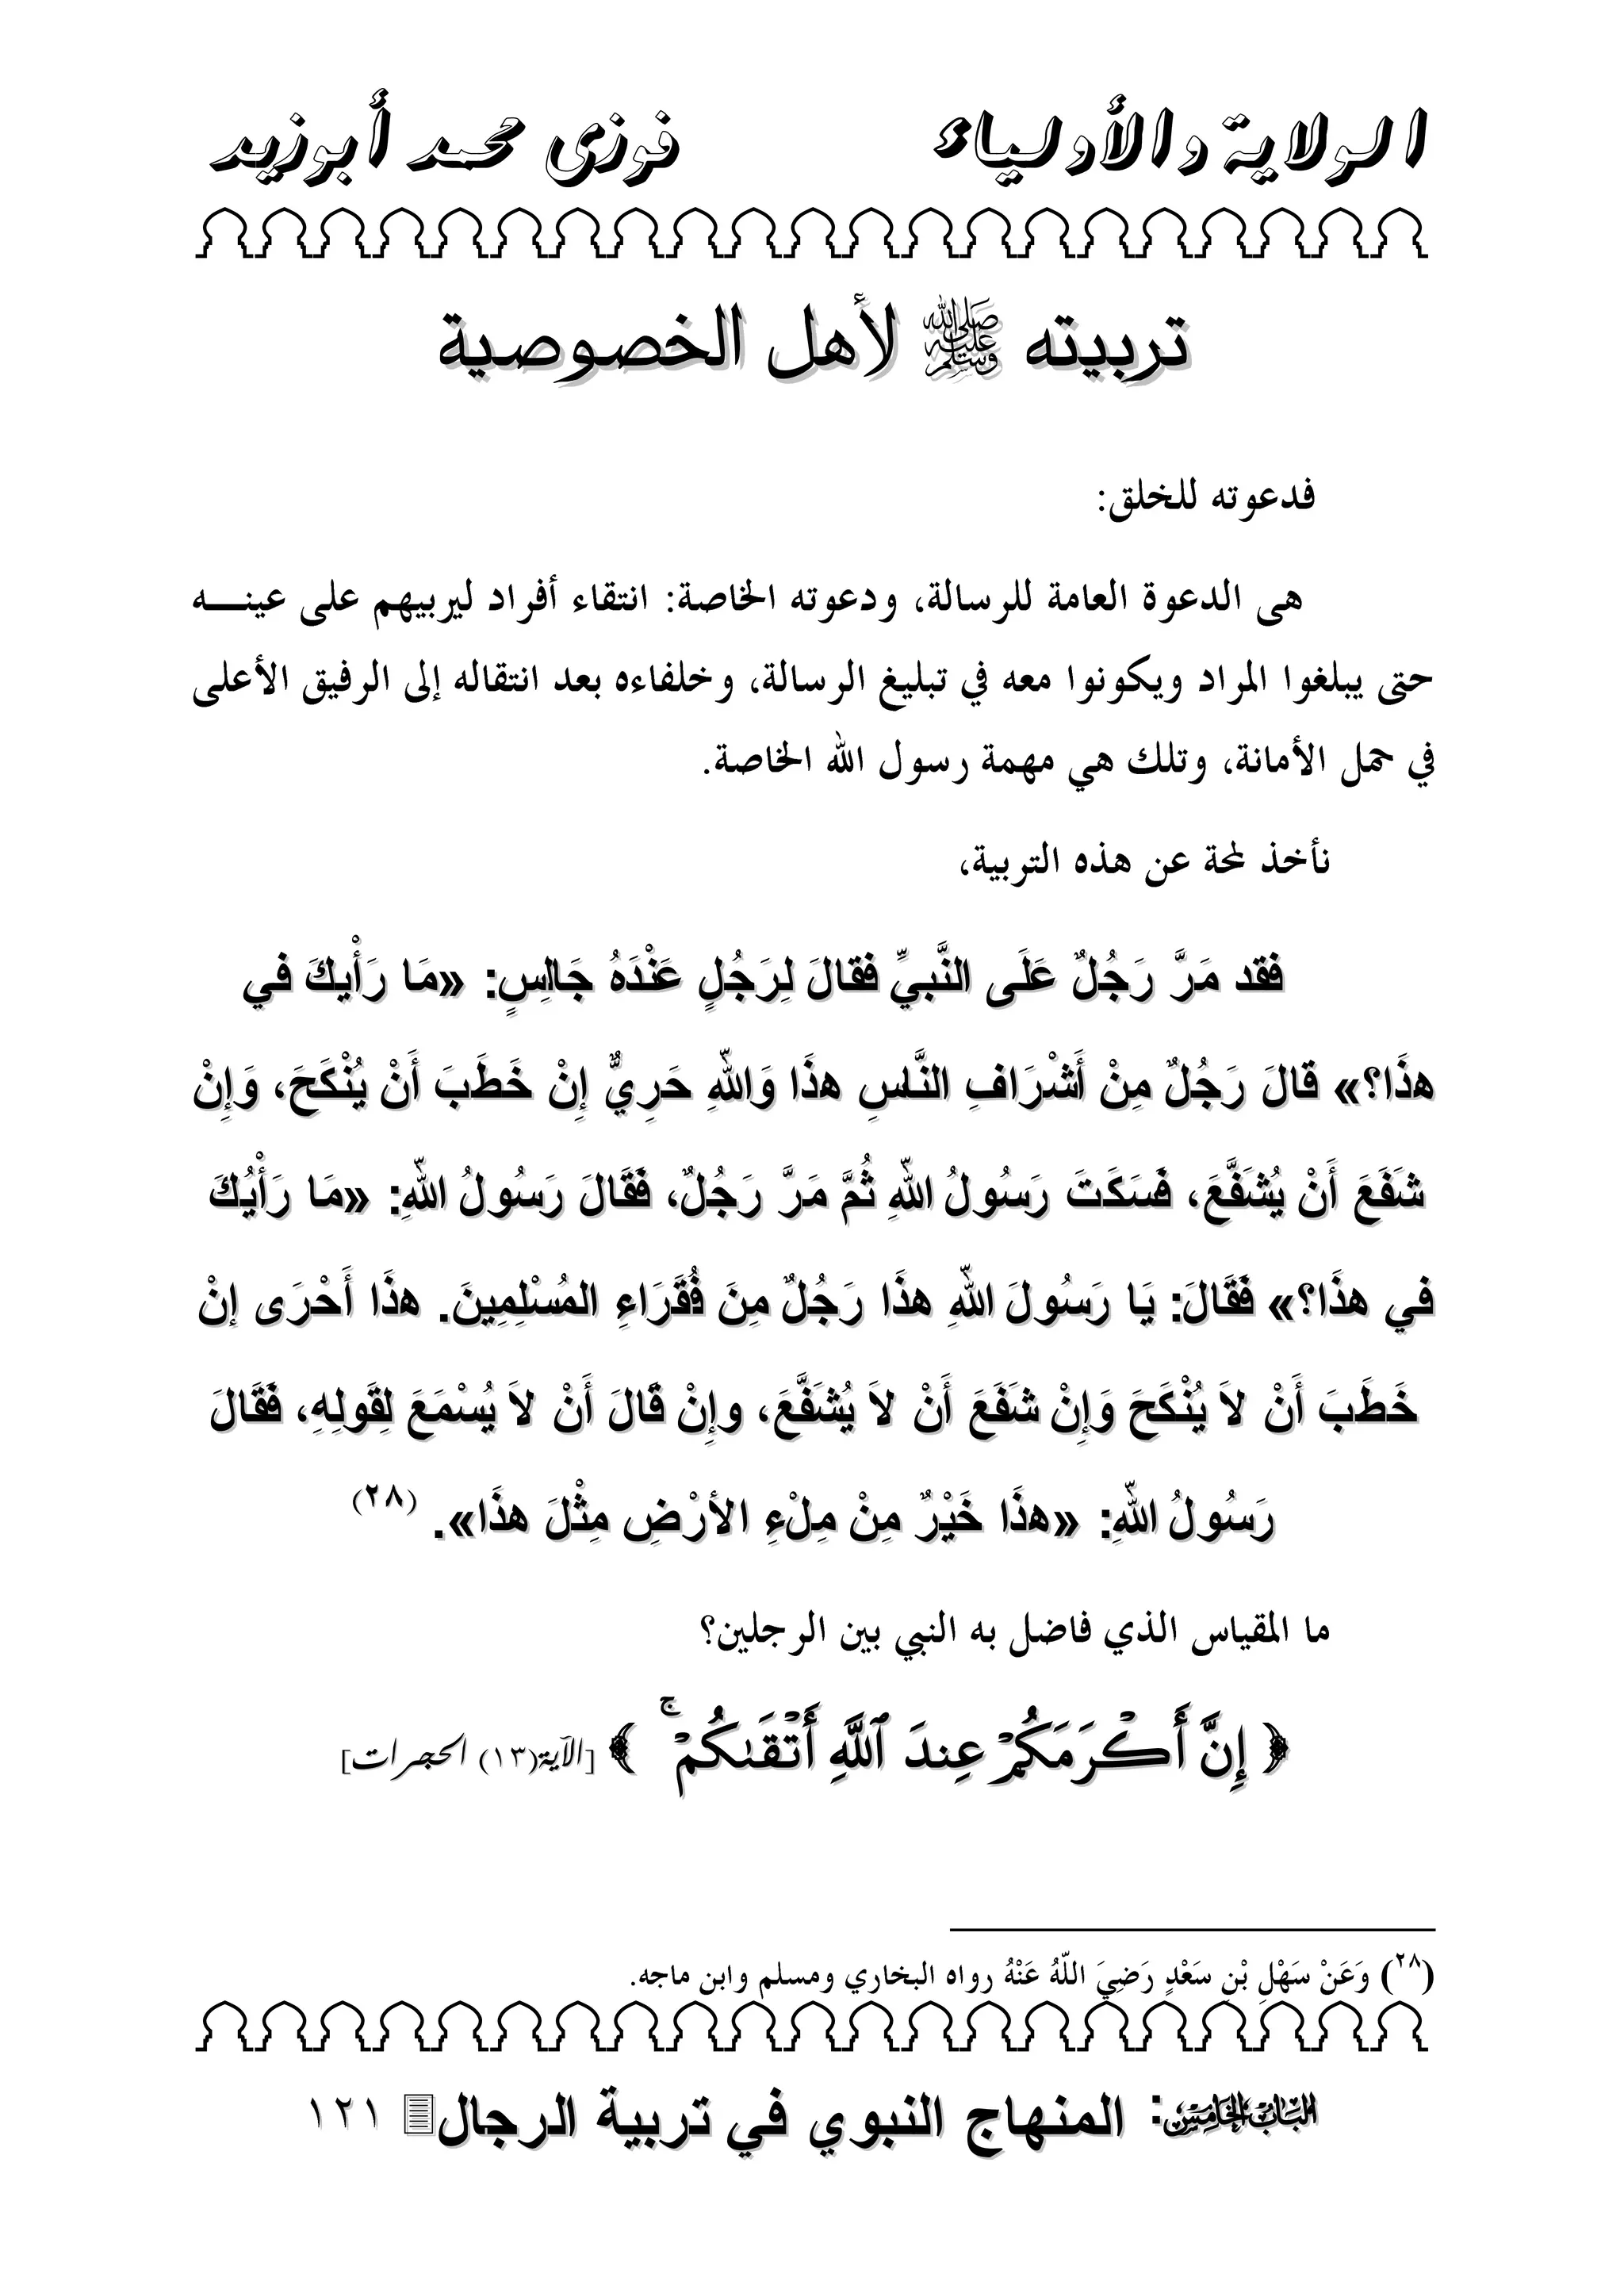 الولاية والأولياء فوزى محمد أبوزيد
تربيته ﷺ لأهل الخصوصية
فدعوته للخلق:
هى الدعوة العامة للرسالة، ودعوته الخاصة: انتقاء أفراد ليربيهم على عينـــه
حتى يبلغوا المراد ويكونوا معه في تبليغ الرسالة، وخلفاءه بعد انتقاله إلى الرفيق الأعلى
في حمل الأمانة، وتلك هي مهمة رسول الله الخاصة.
نأخذ لمحة عن هذه التربية،
فقد مَرَّ رَجُلٌ عَلَى النَّبيِّ فقالَ لِرَجُلٍ عَنْدَهُ جَالسٍ: «مَا رَأْيكَ في
هذَا؟» قالَ رَجُلٌ مِنْ أَشْرَافِ النَّاسِ هذَا وَاللهِ حَرِيٌّ إنْ خَطَبَ أَنْ يُنْكَحَ، وَإِنْ
شَفَعَ أَنْ يُشَفَّعَ، فَسَكَتَ رَسُولُ اللهِ ثُمَّ مَرَّ رَجُلٌ، فَقَالَ رَسُولُ اللهِ: «مَا رَأْيُكَ
في هذَا؟» فَقَالَ: يَا رَسُولَ اللهِ هذَا رَجُلٌ مِنَ فُقَرَاءِ المُسْلِمِينَ. هذَا أَحْرَى إنْ
خَطَبَ أَنْ لاَ يُنْكَحَ وَإِنْ شَفَعَ أَنْ لاَ يُشَفَّعَ، وإِنْ قَالَ أَنْ لاَ يُسْمَعَ لِقَولِهِ، فَقَالَ
رَسُولُ اللهِ: «هذَا خَيْرٌ مِنْ مِلْءِ الأرْضِ مِثْلَ هذَا». (٢٨)
ما المقياس الذي فاضل به النبي بين الرجلين؟
﴿ إِنَّ أَكْرَمَكُمْ عِندَ ٱللَّهِ أَتْقَىٰكُمْ ۚ ﴾ [الآية(١٣) الحجرات]
(٢٨) وَعَنْ سَهْلِ بْنِ سَعْدٍ رَضِيَ اللّهُ عَنْهُ رواه البخاري ومسلم وابن ماجه.
الباب الخامس: المنهاج النبوي في تربية الرجال ١٢١